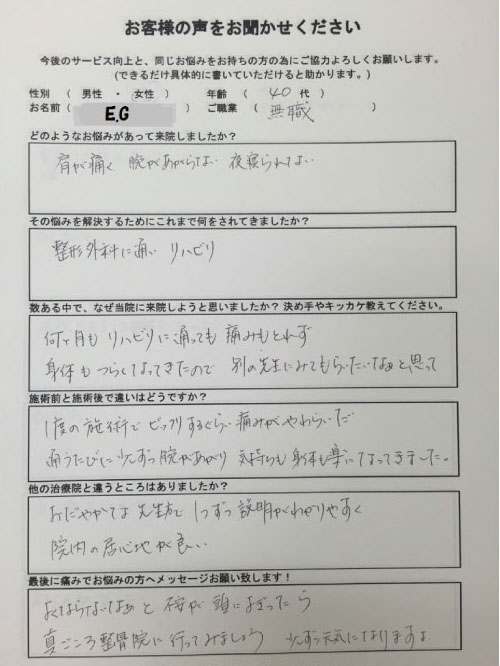 お客様の声をお聞かせください
今後のサービス向上と、同じお悩みをお持ちの方の為にご協力よろしくお願いします。
(できるだけ具体的に書いていただけると助かります。)
性別 ( 男性 ・ 女性 ) 年齢 ( 40 代 )
お名前 ( E.G ) ご職業 ( 無職 )
どのようなお悩みがあって来院しましたか?
肩が痛く 腕があがらない 夜寝られない
その悩みを解決するためにこれまで何をされてきましたか?
整形外科に通い リハビリ
数ある中で、なぜ当院に来院しようと思いましたか? 決め手やキッカケ教えてください。
何ヶ月も リハビリに通っても 痛みもとれず
身体も つらくなってきたので 別の先生にみてもらいたいなぁと思って
施術前と施術後で違いはどうですか?
1度の施術で ビックリするぐらい 痛みがやわらいだ
通うたびに 少しずつ 腕があがり 気持ちも 身体も楽になってきました。
他の治療院と違うところはありましたか?
おだやかな 先生方で 1つずつ 説明がわかりやすく
院内の居心地が良い
最後に痛みでお悩みの方へメッセージお願い致します!
よくならないなぁ と 不安が 頭によぎったら
真ごころ整骨院に行ってみましょう 少しずつ元気になりますよ